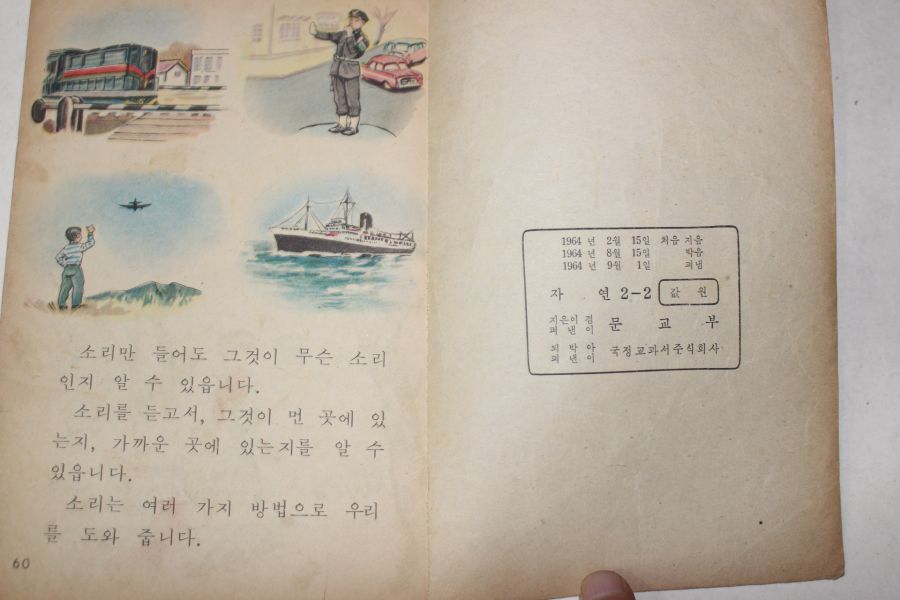 소리만 들어도 그것이 무슨 소리
인지 알 수 있읍니다.
소리를 듣고서, 그것이 먼 곳에 있
는지, 가까운 곳에 있는지를 알 수
있읍니다.
소리는 여러 가지 방법으로 우리
를 도와 줍니다.
60
1964 년 2월 15일 처음 지음
1964 년 8월 15일 박음
1964 년 9월 1일 펴냄
자 연 2-2 값 원
지은이 겸
펴 낸 이 문 교 부
박 아
펴 낸 이 국정교과서주식회사